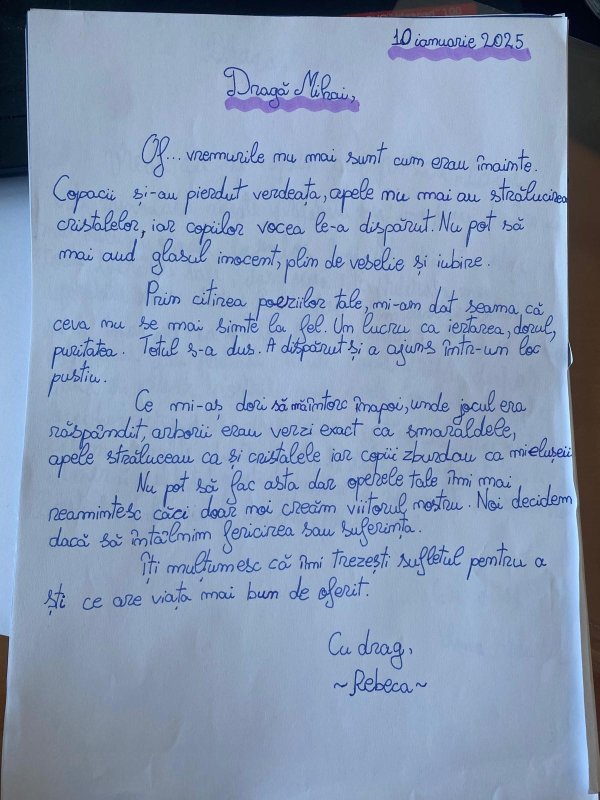 10 ianuarie 2025
Dragă Mihai,
Of... vremurile nu mai sunt cum erau înainte.
Copacii și-au pierdut verdeața, apele nu mai au strălucirea
cristalelor, iar copiilor vocea le-a dispărut. Nu pot să
mai aud glasul inocent, plin de veselie și iubire.
Prin citirea poeziilor tale, mi-am dat seama că
ceva nu se mai simte la fel. Un lucru ca iertarea, dorul,
puritatea. Totul s-a dus. A dispărut și a ajuns într-un loc
pustiu.
Ce mi-aș dori să mă întorc înapoi, unde jocul era
răspândit, arborii erau verzi exact ca smaraldele,
apele străluceau ca și cristalele iar copiii zburdau ca mielușeii
Nu pot să fac asta dar operele tale îmi mai
reamintesc căci doar noi creăm viitorul nostru. Noi decidem
dacă să întâlnim fericirea sau suferința.
Îți mulțumesc că îmi trezești sufletul pentru a
ști ce are viața mai bun de oferit.
Cu drag,
~Rebeca~